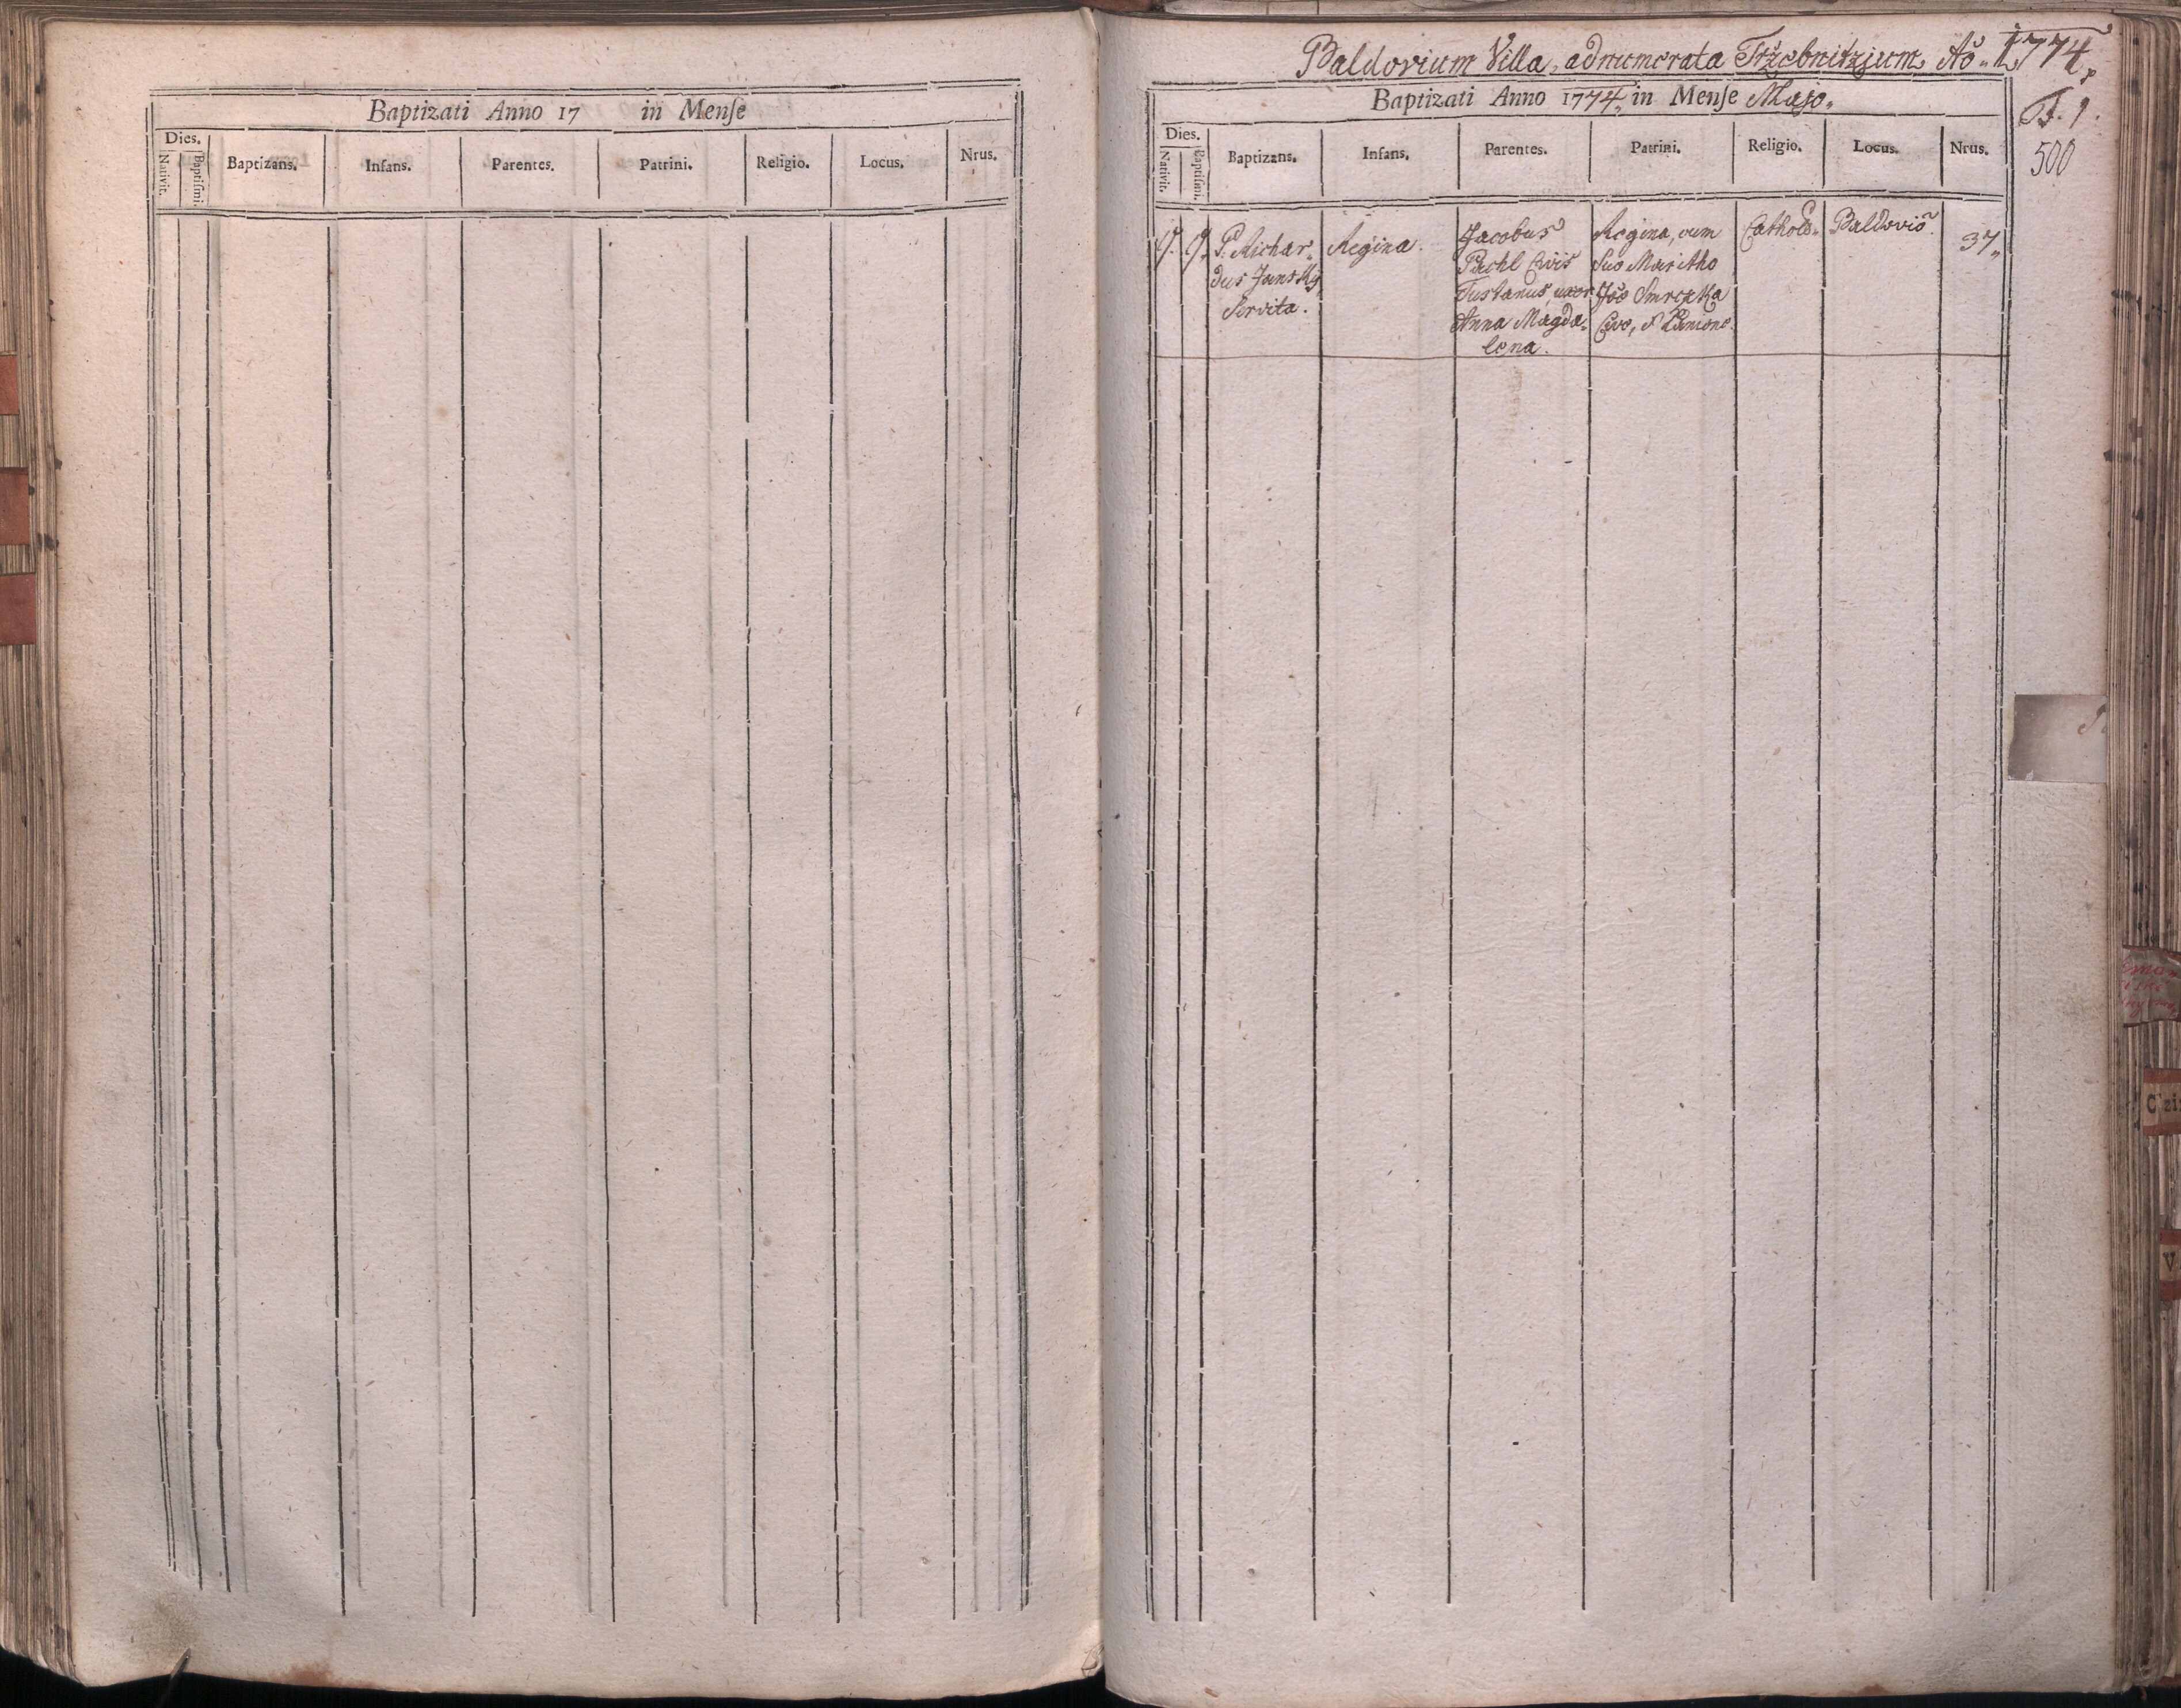 Baptizati Anno 17 in Menſe
Dies.
Nativit.
Baptiſmi.
Baptizans.
Infans.
Parentes.
Patrini.
Religio.
Locus.
Nrus.
Baldovium Villa, adnumerata Tržebnitzium Ao 1774.
Baptizati Anno 1774 in Menſe Majo.
T. 1.
500
Dies.
Nativit.
Baptiſmi.
Baptizans.
Infans.
Parentes.
Patrini.
Religio.
Locus.
Nrus.
9. 9.
P. Richar
dus Janský
Servita.
Regina.
Jacobus
Pachl Civis
Tustanus, uxor
Anna Magda
lena.
Regina, cum
Suo Maritho
Smrczka
Cive,
Cathol.
Baldovio
37